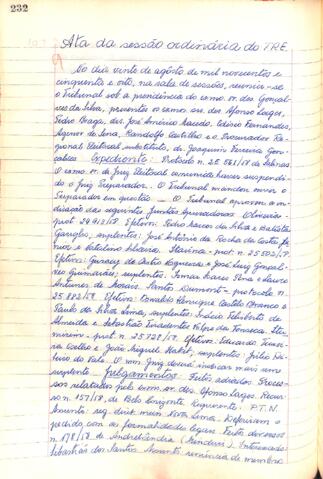 232
Ata da sessão ordinária do TRE.
Ao dia vinte de agôsto de mil novecentos e
cinquenta e oito, na sala de sessões, reuniu-se
o Tribunal sob a presidência do exmo. sr. des. Gonçal-
ves da Silva, presentes os exmos. srs. des. Afonso Lages,
Pedro Braga, drs. José Américo Macedo, Edésio Fernandes,
de Sena, Randolfo Castilho e o Procurador Re-
gional Eleitoral substituto, dr. Joaquim Ferreira Gon-
çalves. Expediente: Protocolo n. 25 561/58 de
O exmo. sr. Juiz Eleitoral comunicando haver suspendi-
do o Juiz Preparador. O Tribunal mandou ouvir o
Preparador em questão — O Tribunal aprovou a in-
dicação das seguintes Juntas Apuradoras: Oliveira-
prot 24912/58. Efetivos: Pedro da Silva e Batista
suplentes: José Antônio da Rocha da Costa
e Itaúna - prot. n. 25502/58.
Efetivos: de Castro e José Luiz Gonçal-
ves Guimarães; suplentes: Pena e Lauro
Antunes de Morais. Santos Dumont - protocolo n.
25.882/58. Efetivos: Oswaldo Henrique Castelo Branco e
Paulo da Silva Lima, suplentes: Inácio Felisberto de
Almeida e Sebastião Tiradentes Felipe da Fonseca.
- prot. n. 25728/58. Efetivos: Eduardo Teixei-
ra Coelho e João Miguel suplentes: Júlio
do Vale. O mm Juiz deverá indicar mais um
suplente — Julgamentos - Feitos adiados. Proces-
sos relatados pelo exmo. sr. des. Afonso Lages. Recur-
so n. 157/58, de Belo Horizonte. Requerente: P.T.N.
Assunto: reg. diret. mun. Nova Lima. Deferiram o
pedido, com as formalidades legais. Feito
n. 178/58 de Andrelândia (Minduri). Interessado:
Sebastião dos Santos. Assunto: renúncia de membro